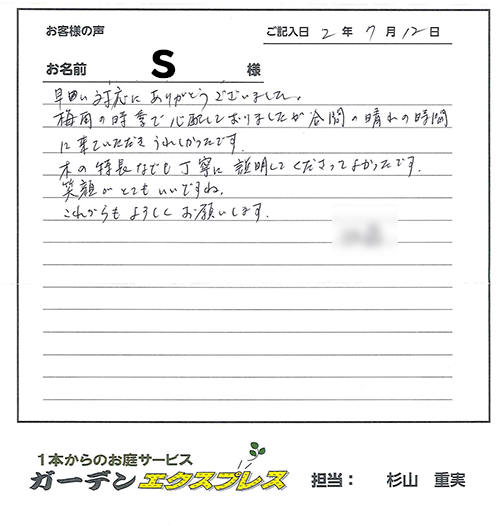 お客様の声
ご記入日 2 年 7 月 12 日
お名前 S 様
早急い対応にありがとうございました。
梅雨の時季で心配しておりましたが谷間の晴れの時間
に来ていただきうれしかったです。
木の特長なども丁寧に説明してくださってよかったです。
笑顔がとてもいいですね。
これからもよろしくお願いします。
1本からのお庭サービス
ガーデンエクスプレス 担当： 杉山 重実